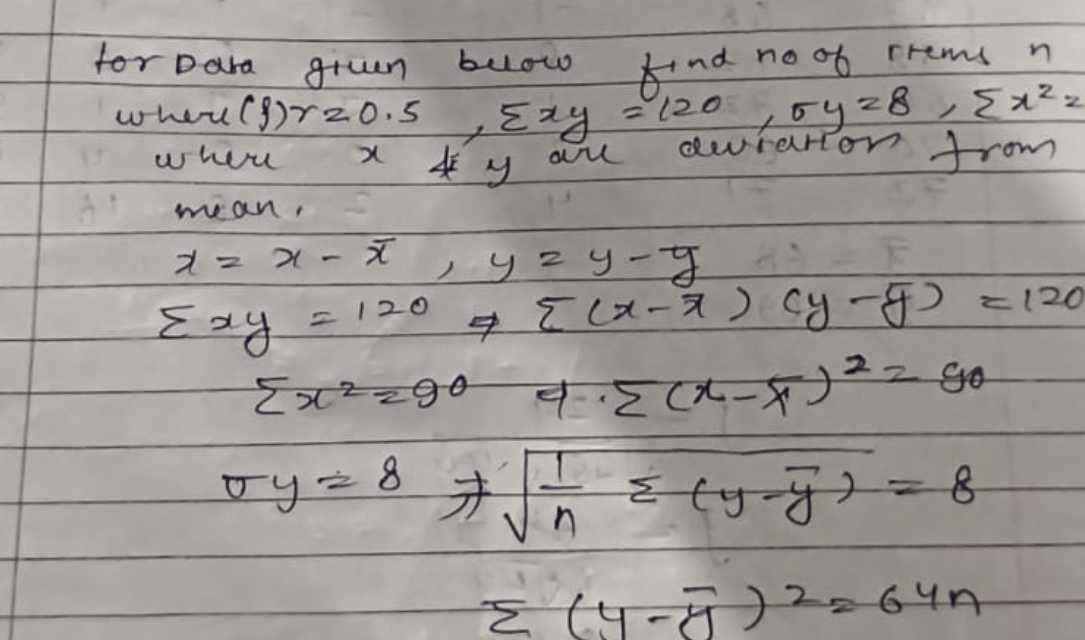 for Data given below find no of items n
where (ρ) r = 0.5 , Σxy = 120 , σy = 8 , Σx² =
where x & y are deviation from
mean.
x = x - x̄ , y = y - ȳ
Σxy = 120 ⇒ Σ(x - x̄) (y - ȳ) = 120
Σx² = 90 ⇒ Σ(x - x̄)² = 90
σy = 8 ⇒ √1/n Σ (y - ȳ) = 8
Σ (y - ȳ)² = 64n